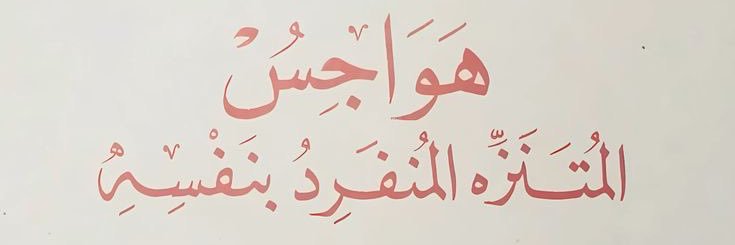 هَوَاجِسُ
المُتَنَزِّه المُنفَرِدُ بنَفْسِهِ